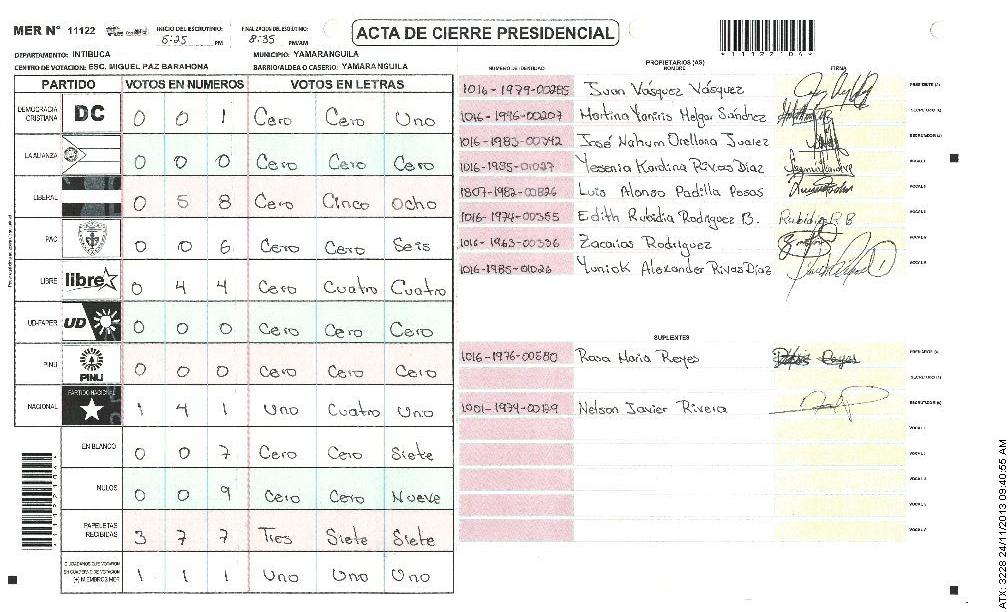 MER Nº 11122 INICIO DEL ESCRUTINIO: 6:25 PM FINALIZACION DEL ESCRUTINIO: 8:35 PM/AM ACTA DE CIERRE PRESIDENCIAL
1 1 1 2 2 1 0 4
DEPARTAMENTO: INTIBUCA MUNICIPIO: YAMARANGUILA
CENTRO DE VOTACION: ESC. MIGUEL PAZ BARAHONA BARRIO/ALDEA O CASERIO: YAMARANGUILA
PARTIDO VOTOS EN NUMEROS VOTOS EN LETRAS
DEMOCRACIA CRISTIANA DC 0 0 1 Cero Cero Uno
LA ALIANZA 0 0 0 Cero Cero Cero
LIBERAL 0 5 8 Cero Cinco Ocho
PAC 0 0 6 Cero Cero Seis
LIBRE libre 0 4 4 Cero Cuatro Cuatro
UD-FAPER UD 0 0 0 Cero Cero Cero
PINU PINU 0 0 0 Cero Cero Cero
NACIONAL PARTIDO NACIONAL 1 4 1 Uno Cuatro Uno
EN BLANCO 0 0 7 Cero Cero Siete
NULOS 0 0 9 Cero Cero Nueve
PAPELETAS RECIBIDAS 3 7 7 Tres Siete Siete
CIUDADANOS QUE VOTARON EN CUADERNO DE VOTACION (+) MIEMBROS MER 1 1 1 Uno Uno Uno
PROPIETARIOS (AS)
NUMERO DE IDENTIDAD NOMBRE FIRMA
1016-1979-00285 Juan Vásquez Vásquez PRESIDENTE (A)
1016-1996-00207 Martina Yaniris Melgar Sánchez SECRETARIO (A)
1016-1983-00342 José Nahum Orellana Juarez ESCRUTADOR (A)
1016-1985-01027 Yesenia Karolina Rivas Díaz VOCAL 1
1807-1982-00826 Luis Alonso Padilla Posas
1016-1974-00355 Edith Rubidia Rodriguez B. Rubidia R B
1016-1963-00336 Zacarias Rodriguez
1016-1985-01026 Yuniok Alexander Rivas Díaz
SUPLENTES
1016-1976-00580 Rosa Maria Reyes PRESIDENTE (A)
SECRETARIO (A)
1001-1974-00129 Nelson Javier Rivera ESCRUTADOR (A)
VOCAL 1
ATX: 3228 24/11/2013 09:40:55 AM